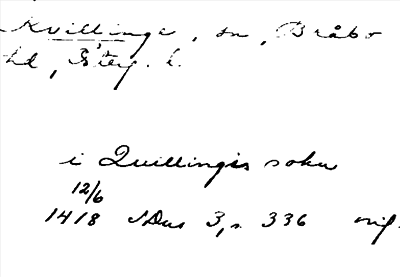 Kvillinge, sn, Bråbo
hd, Öterg. l.
i Quillingis sokn
12/6
1418 SDns 3, s. 336 orig.